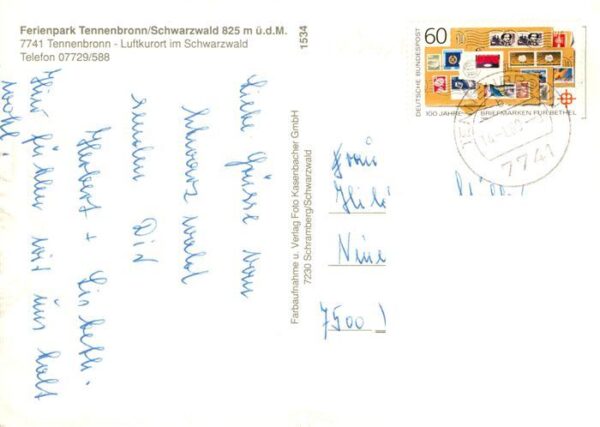 Ferienpark Tennenbronn/Schwarzwald 825 m ü.d.M.
7741 Tennenbronn - Luftkurort im Schwarzwald
Telefon 07729/588
1534
Liebe Grüsse vom
Schwarzwald
senden Dir
Herbert + Lisbeth.
Hier für
wird
kalt
Farbaufnahme u. Verlag Foto Kasenbacher GmbH
7230 Schramberg/Schwarzwald
60
DEUTSCHE BUNDESPOST
100 JAHRE BRIEFMARKEN FÜR BETHEL
7741
Frau
7500